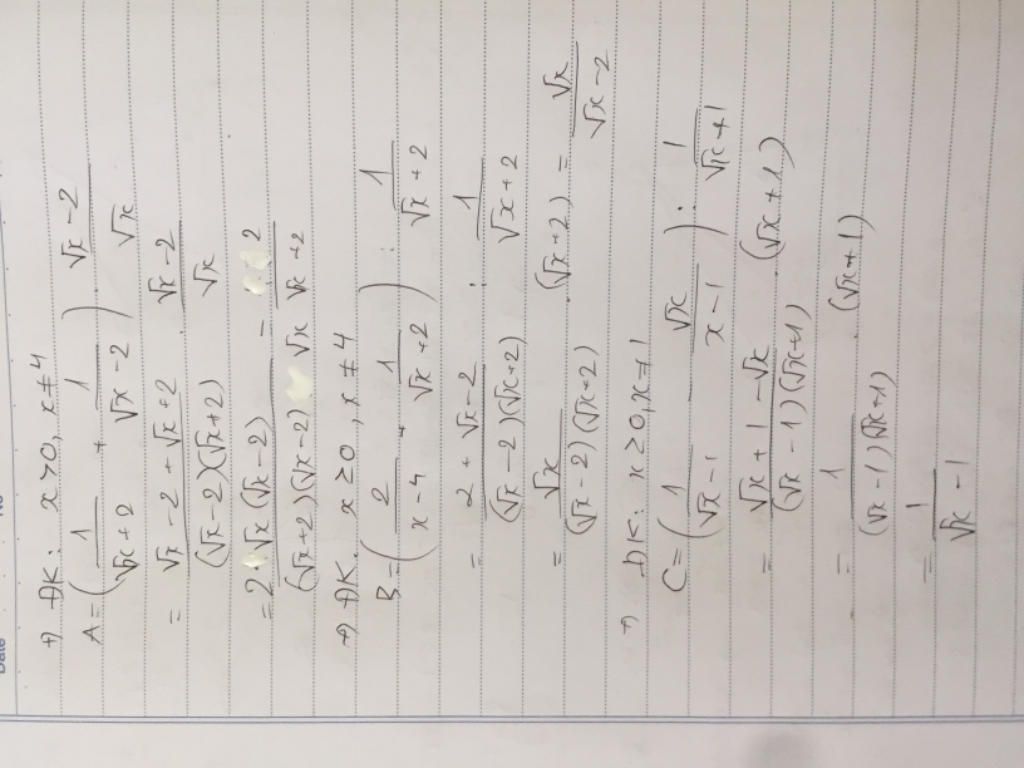 Date
No
+) ĐK: x > 0, x ≠ 4
A = ( 1/(√x + 2) + 1/(√x - 2) ) . (√x - 2)/√x
= (√x - 2 + √x + 2)/((√x - 2)(√x + 2)) . (√x - 2)/√x
= 2.√x(√x - 2)/((√x + 2)(√x - 2)√x) = 2/(√x + 2)
+) ĐK. x ≥ 0, x ≠ 4
B = ( 2/(x - 4) + 1/(√x + 2) ) : 1/(√x + 2)
= (2 + √x - 2)/((√x - 2)(√x + 2)) : 1/(√x + 2)
= √x/((√x - 2)(√x + 2)) . (√x + 2) = √x/(√x - 2)
+) ĐK: x ≥ 0, x ≠ 1
C = ( 1/(√x - 1) - √x/(x - 1) ) : 1/(√x + 1)
= (√x + 1 - √x)/((√x - 1)(√x + 1)) . (√x + 1)
= 1/((√x - 1)(√x + 1)) . (√x + 1)
= 1/(√x - 1)